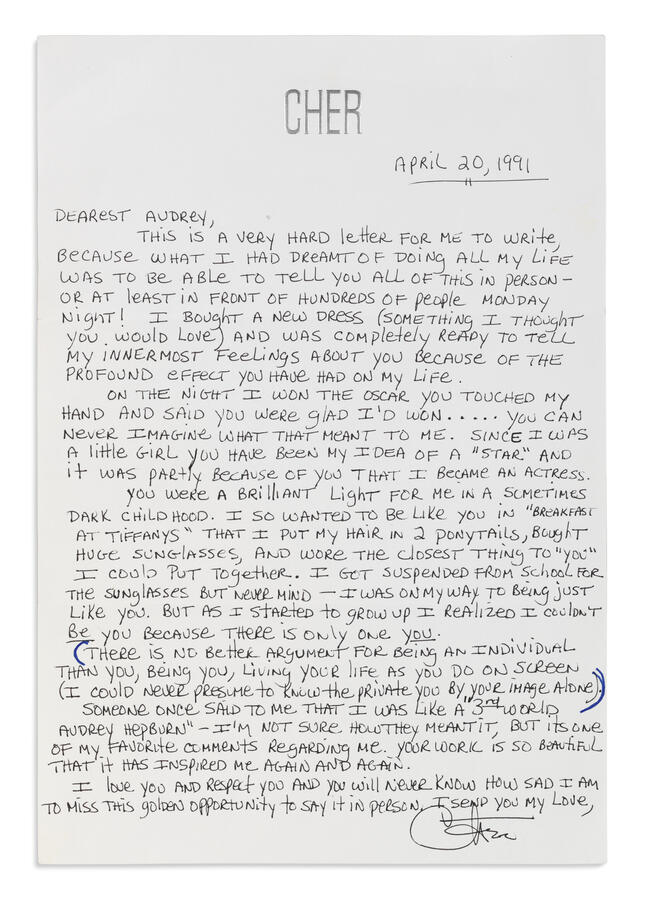 CHER
APRIL 20, 1991
DEAREST AUDREY,
THIS IS A VERY HARD letter FOR ME TO WRITE,
BECAUSE WHAT I HAD DREAMT OF DOING ALL MY LIFE
WAS TO BE ABLE TO TELL YOU ALL OF THIS IN PERSON –
OR AT LEAST IN FRONT OF HUNDREDS OF PEOPLE MONDAY
NIGHT! I BOUGHT A NEW DRESS (SOMETHING I THOUGHT
YOU WOULD LOVE) AND WAS COMPLETELY READY TO TELL
MY INNERMOST FEELINGS ABOUT YOU BECAUSE OF THE
PROFOUND EFFECT YOU HAVE HAD ON MY LIFE.
ON THE NIGHT I WON THE OSCAR YOU TOUCHED MY
HAND AND SAID YOU WERE GLAD I'D WON..... YOU CAN
NEVER IMAGINE WHAT THAT MEANT TO ME. SINCE I WAS
A little GIRL YOU HAVE BEEN MY IDEA OF A "STAR" AND
it WAS PARTLY BECAUSE OF YOU THAT I BECAME AN ACTRESS.
YOU WERE A BRILLIANT LIGHT FOR ME IN A SOMETIMES
DARK CHILDHOOD. I SO WANTED TO BE LIKE YOU IN "BREAKFAST
AT TIFFANYS" THAT I PUT MY HAIR IN 2 PONYTAILS, BOUGHT
HUGE SUNGLASSES, AND WORE THE CLOSEST THING TO "YOU"
I COULD PUT TOGETHER. I GOT SUSPENDED FROM SCHOOL FOR
THE SUNGLASSES BUT NEVER MIND – I WAS ON MY WAY TO BEING JUST
LIKE YOU. BUT AS I STARTED TO GROW UP I REALIZED I COULDN'T
BE YOU BECAUSE THERE IS ONLY ONE YOU.
(THERE IS NO BETTER ARGUMENT FOR BEING AN INDIVIDUAL
THAN YOU, BEING YOU, LIVING YOUR LIFE AS YOU DO ON SCREEN
(I COULD NEVER PRESUME TO KNOW THE PRIVATE YOU BY YOUR IMAGE ALONE).)
SOMEONE ONCE SAID TO ME THAT I WAS LIKE A "3rd WORLD
AUDREY HEPBURN" – I'M NOT SURE HOW THEY MEANT IT, BUT ITS ONE
OF MY FAVORITE COMMENTS REGARDING ME. YOUR WORK IS SO BEAUTIFUL
THAT IT HAS INSPIRED ME AGAIN AND AGAIN.
I LOVE YOU AND RESPECT YOU AND YOU WILL NEVER KNOW HOW SAD I AM
TO MISS THIS GOLDEN OPPORTUNITY TO SAY IT IN PERSON. I SEND YOU MY LOVE,
Cher